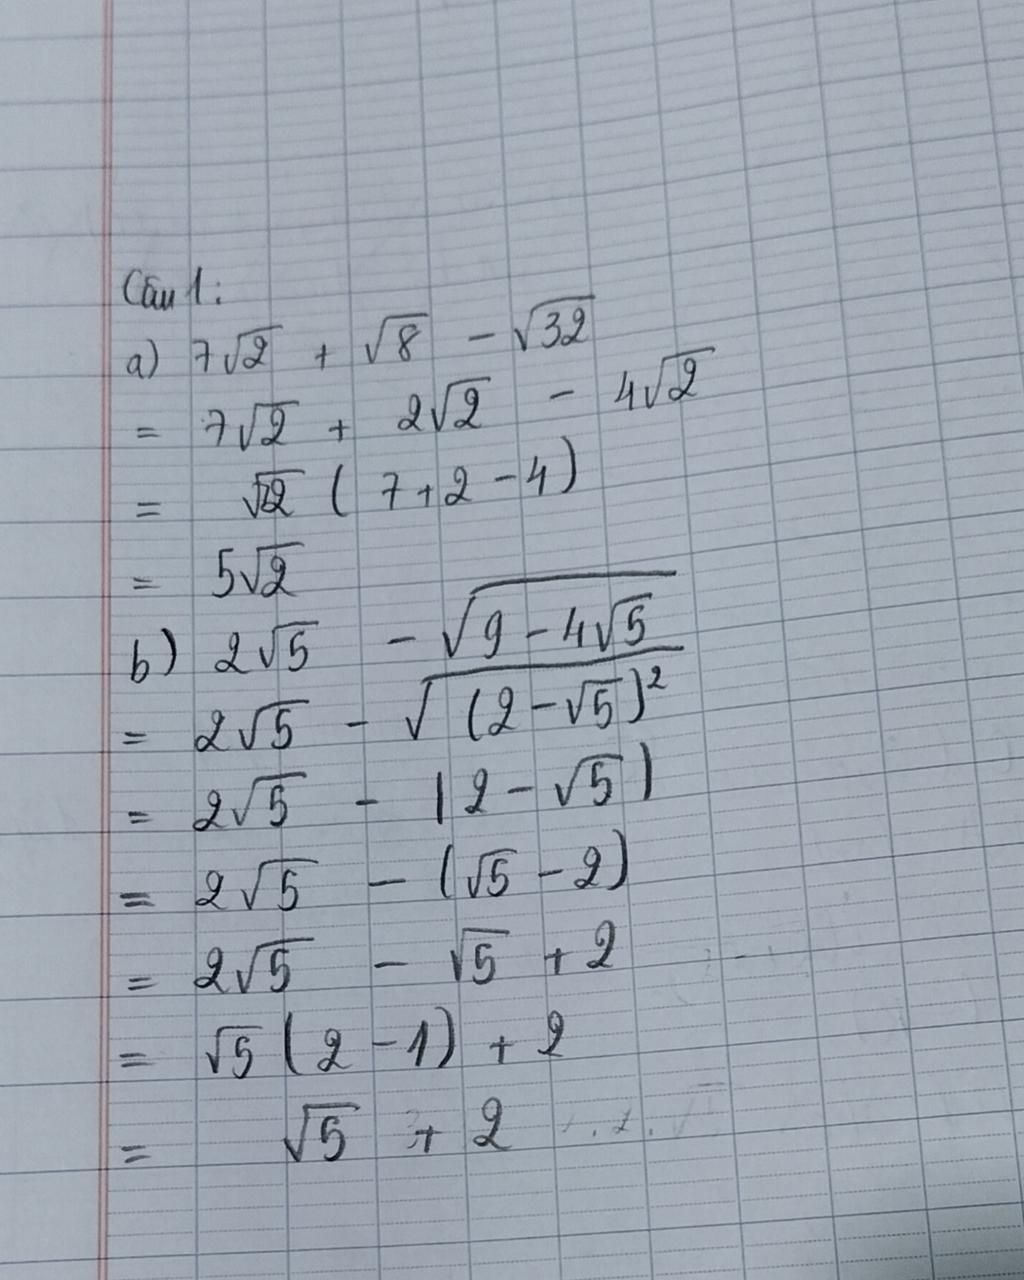 Câu 1:
a) 7√2 + √8 - √32
= 7√2 + 2√2 - 4√2
= √2 ( 7 + 2 - 4 )
= 5√2
b) 2√5 - √(9 - 4√5)
= 2√5 - √((2 - √5)²)
= 2√5 - |2 - √5|
= 2√5 - (√5 - 2)
= 2√5 - √5 + 2
= √5 (2 - 1) + 2
= √5 + 2